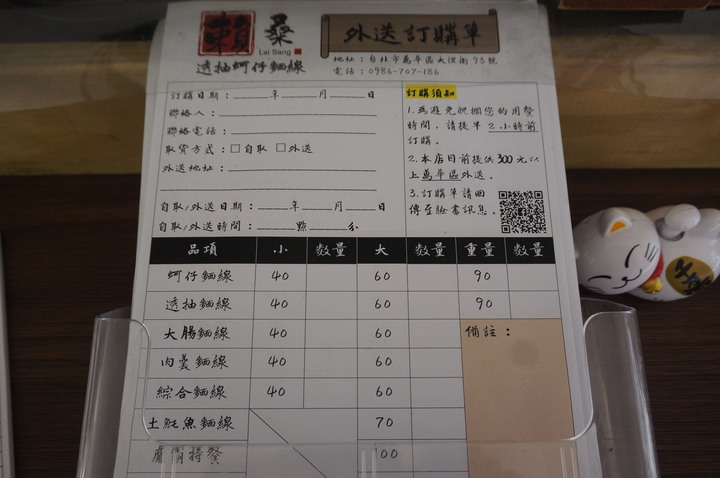 賴桑
Lai Sang
透抽蚵仔麵線
外送訂購單
地址：台北市萬華區大理街95號
電話：0986-707-186
訂購日期：____年____月____日
聯絡人：
聯絡電話：
取貨方式：□自取 □外送
外送地址：
自取/外送日期：____年____月____日
自取/外送時間：____點____分
訂購須知
1.為避免耽擱您的用餐
時間，請提早2小時前
訂購。
2.本店目前提供300元以
上萬華區外送。
3.訂購單請回
傳至臉書訊息。
品項 小 數量 大 數量 重量 數量
蚵仔麵線 40 60 90
透抽麵線 40 60 90
大腸麵線 40 60 備註：
肉羹麵線 40 60
綜合麵線 40 60
土魠魚麵線 70
100